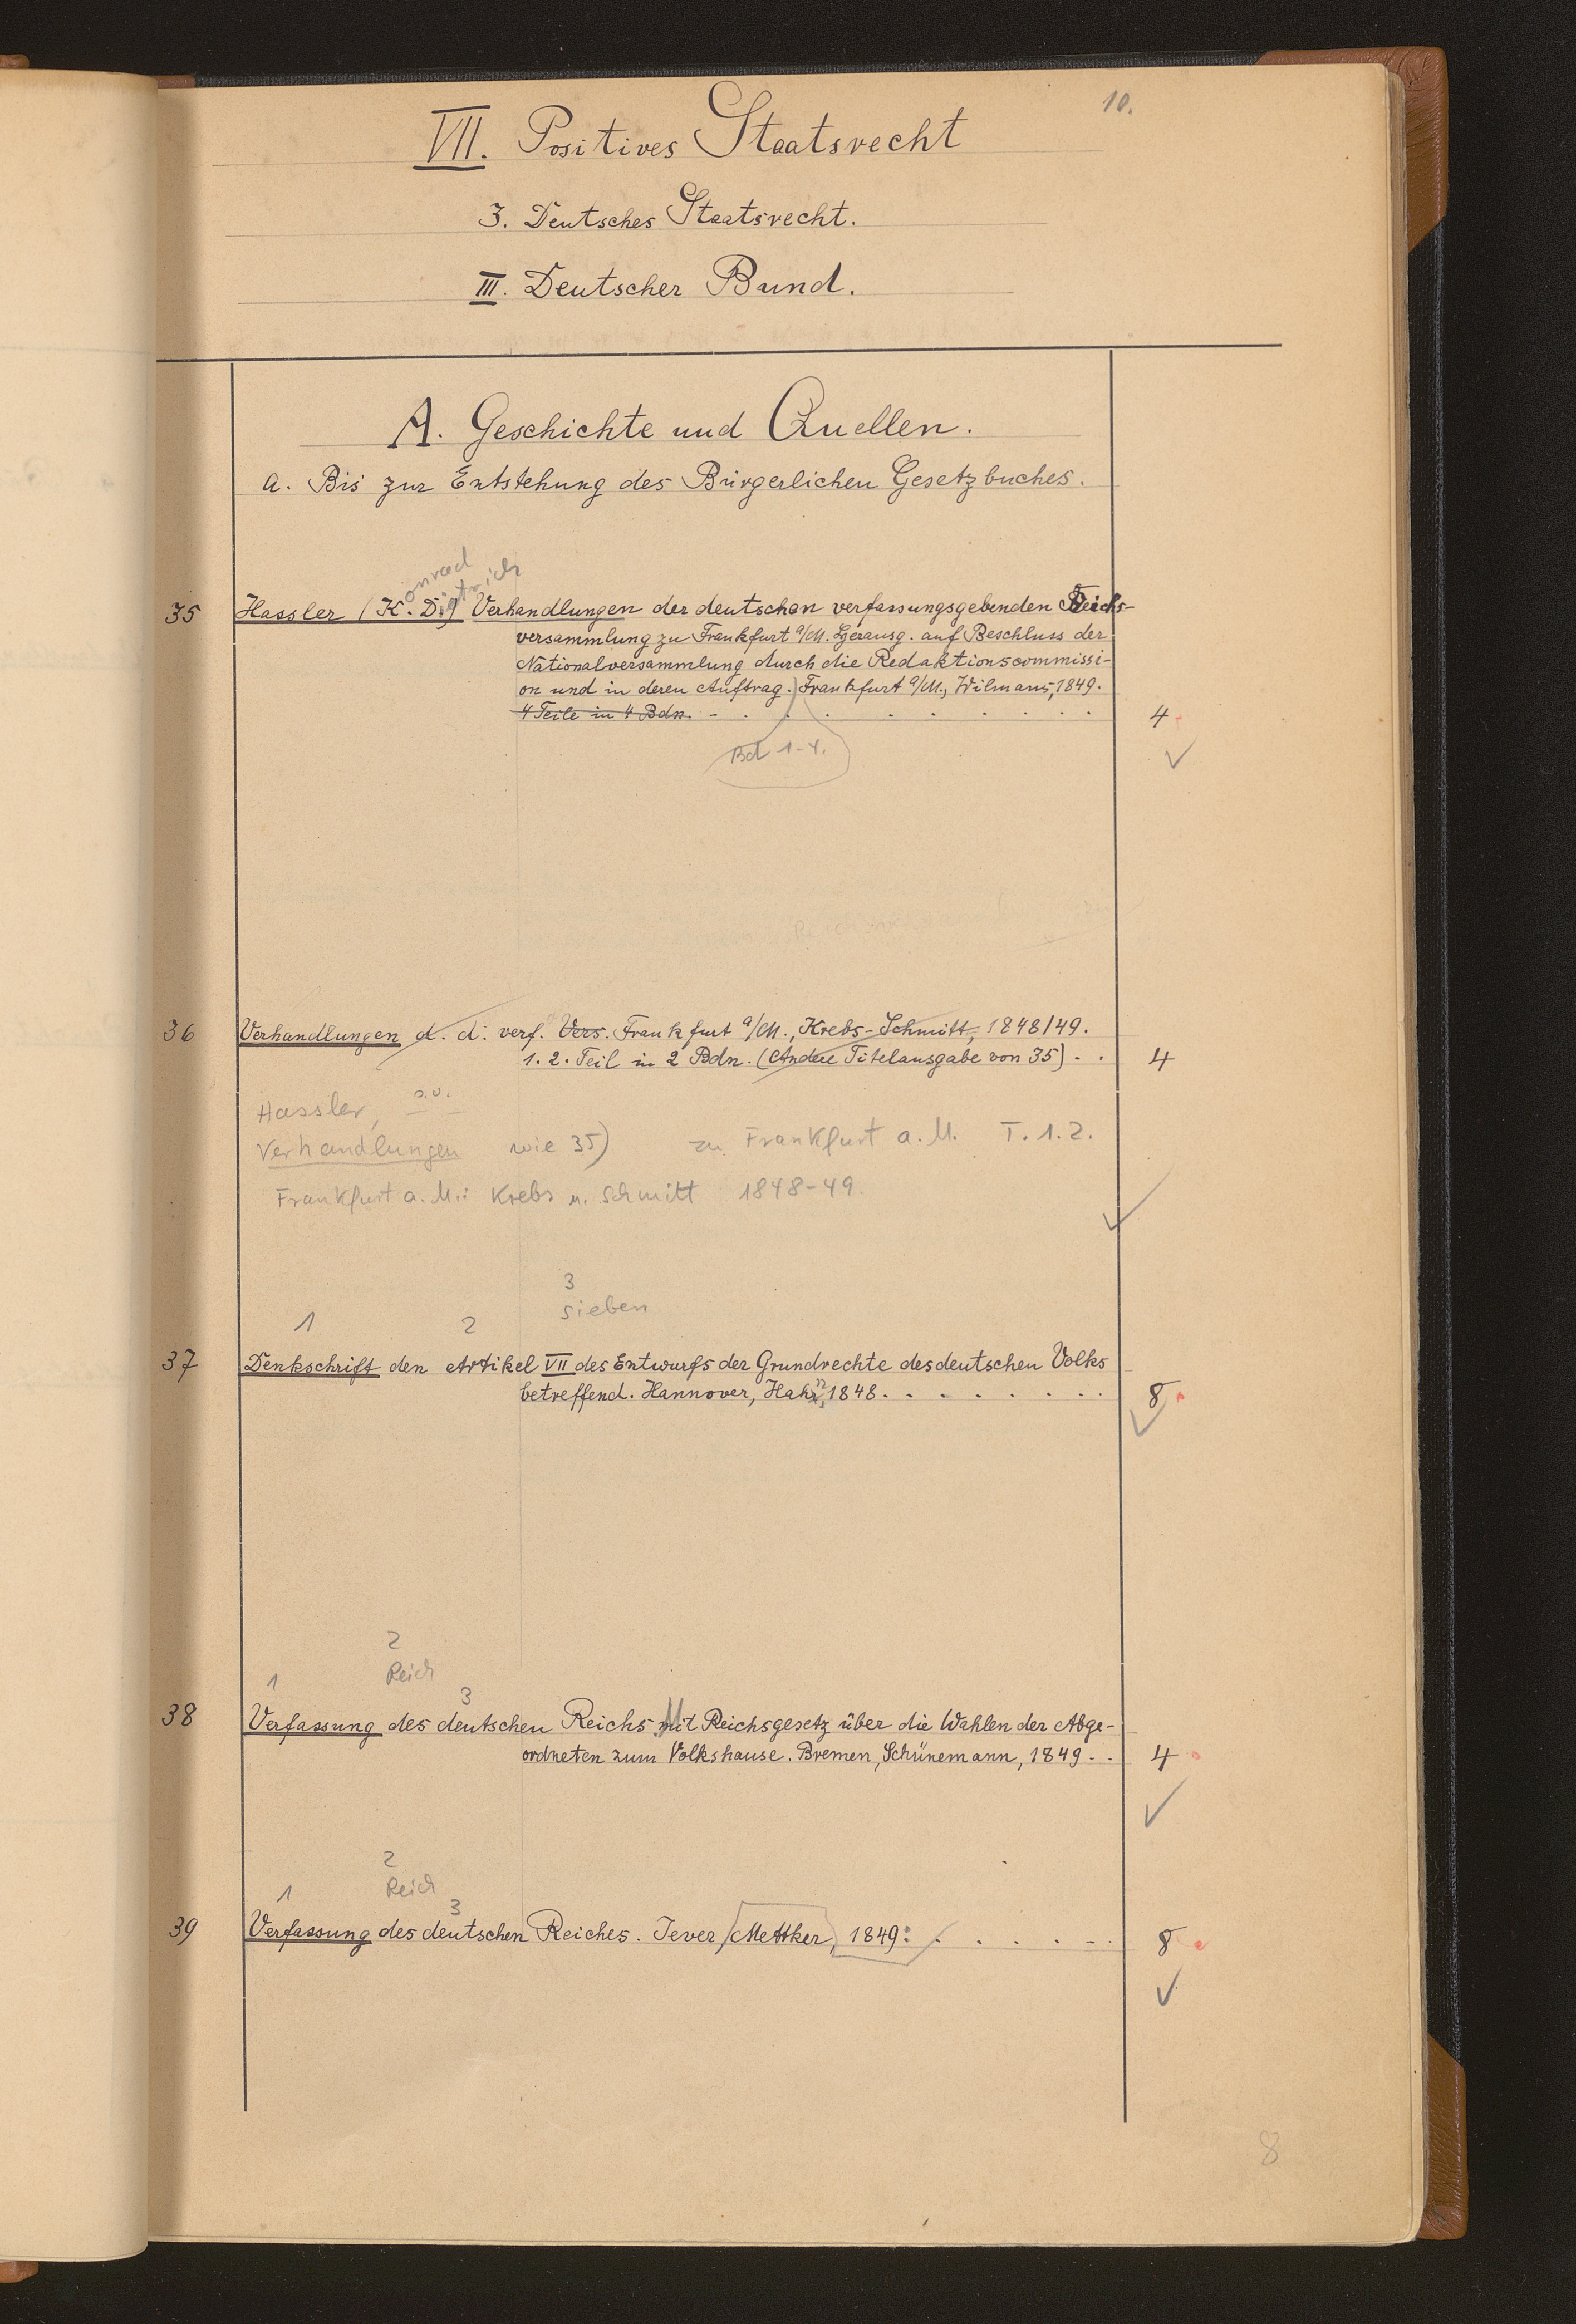 10.
VII. Positives Staatsrecht
3. Deutsches Staatsrecht.
III. Deutscher Bund.
A. Geschichte und Quellen.
a. Bis zur Entstehung des Bürgerlichen Gesetzbuches.
onrad ietrich
35 Hassler (K. D.) Verhandlungen der deutschen verfassungsgebenden Reichs-
versammlung zu Frankfurt a/M. Herausg. auf Beschluss der
Nationalversammlung durch die Redaktionscommissi-
on und in deren Auftrag. Frankfurt a/M., Wilmans, 1849.
4 Teile in 4 Bdn. 4
Bd 1-4.
36 Verhandlungen d. d. verf. Vers. Frankfurt a/M., Krebs-Schmitt, 1848/49.
1. 2. Teil in 2 Bdn. (Andere Titelausgabe von 35) . . 4
Hassler, s.o.
Verhandlungen wie 35) zu Frankfurt a. M. T. 1. 2.
Frankfurt a. M.: Krebs u. Schmitt 1848-49.
3
sieben
1 2
37 Denkschrift den Artikel VII des Entwurfs der Grundrechte des deutschen Volks
betreffend. Hannover, Hahn, 1848. . . . . . . . . 8
2
Reich
1 3
38 Verfassung des deutschen Reichs. Mit Reichsgesetz über die Wahlen der Abge-
ordneten zum Volkshause. Bremen, Schünemann, 1849 . . 4
2
Reich
1 3
39 Verfassung des deutschen Reiches. Jever, Mettker, 1849: . . . . . . 8
8